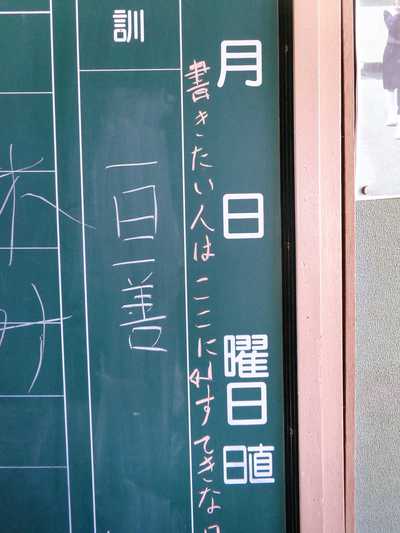 月 日 曜日 日直
書きたい人はここに⇦すてきな
訓
一日二善